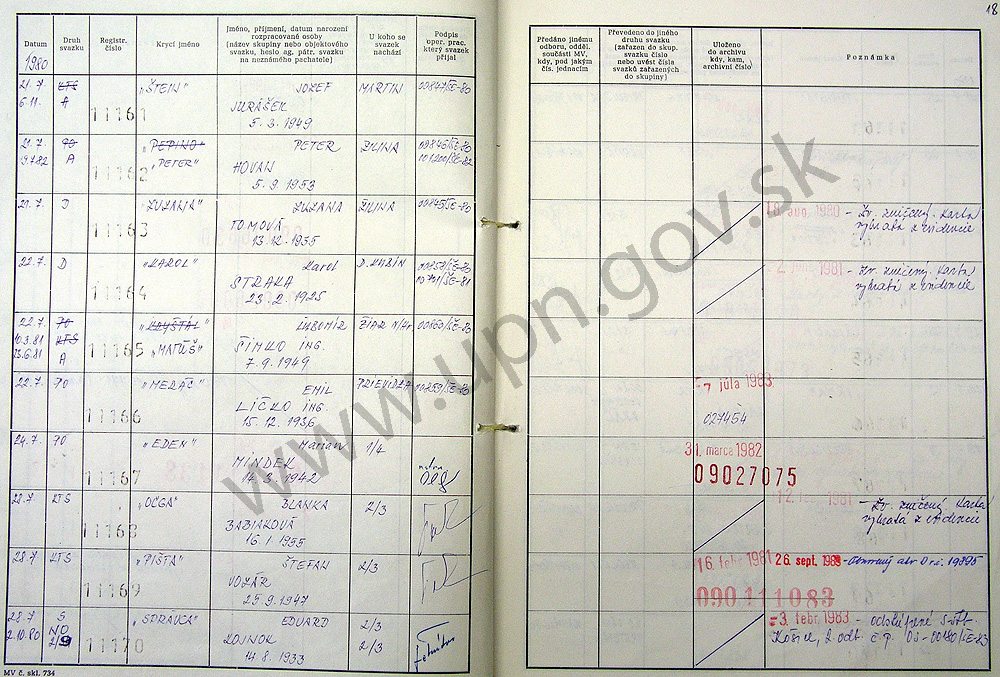 18
Datum
Druh svazku
Registr. číslo
Krycí jméno
Jméno, příjmení, datum narození
rozpracované osoby
(název skupiny nebo objektového
svazku, heslo ag. pátr. svazku
na neznámého pachatele)
U koho se
svazek
nachází
Podpis
oper. prac.
který svazek
přijal
Předáno jinému
odboru, odděl.
součásti MV,
kdy, pod jakým
čís. jednacím
Převedeno do jiného
druhu svazku
(zařazen do skup.
svazku číslo
nebo uvést čísla
svazků zařazených
do skupiny)
Uloženo
do archivu
kdy, kam,
archivní číslo
Poznámka
1980
21.7. KTS "ŠTEIN" JOZEF MARTIN 00847/SE-80
6.11. A 11161 JURÁŠEK
5.3.1949
21.7. PO "PEPINO" PETER ŽILINA 00846/SE-80
A "PETER" 11162 HOVAN
5.9.1953
21.7. D "ZUZANA" ZUZANA ŽILINA 00845/SE-80 18. aug. 1980 - Zv. zničený. Karta
11163 TOMOVÁ vybratá z evidencie
13.12.1935
22.7. D "KAROL" Karol D. KUBÍN 00858/SE-80 1981 - Zv. zničený. Karta
11164 STRAKA vybratá z evidencie
23.2.1925
22.7. PO "KRYŠTÁL" ĽUBOMÍR ŽIAR N/H. 00860/SE-80
10.3.81 KTS 11165 "MATÚŠ" ŠIMKO ING.
A 7.9.1949
22.7. PO "MEDÁČ" EMIL PRIEVIDZA 00859/SE-80 7 júla 1983
11166 LÍČKO ING. 027454
15.12.1936
24.7. PO "EDEN" Marian 1/4 31. marca 1982
11167 MINDEK 09027075
14.3.1942
28.7 KTS "OĽGA" BLANKA 2/3 1981 - Zv. zničený Karta
11168 BABIAKOVÁ vybratá z evidencie
16.1.1955
28.7 KTS "PIŠTA" ŠTEFAN 2/3 16. febr 1981 26. sept. 1989
11169 VOZÁR 090111083
25.9.1947
28.7 S "SPRÁVCA" EDUARD 2/3 3. febr. 1983 - odstúpené
2.10.80 NO 11170 KOJNOK 2/3 Košice, 2. odb.
14.8.1933
MV č. skl. 734
www.upn.gov.sk